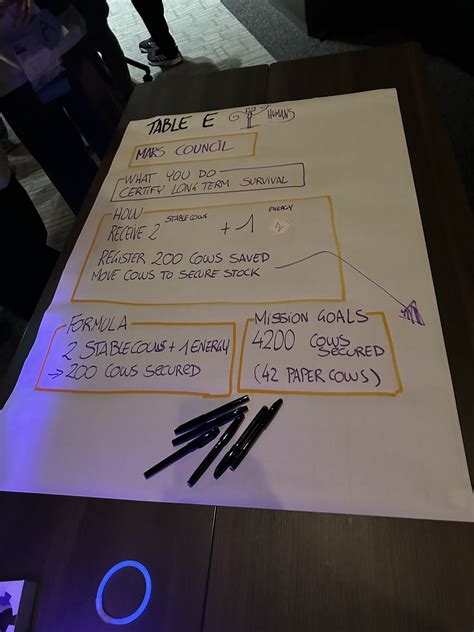 TABLE E
HUMANS
MARS COUNCIL
WHAT YOU DO
CERTIFY LONG TERM SURVIVAL
HOW
STABLE COWS
ENERGY
RECEIVE 2 + 1
REGISTER 200 COWS SAVED
MOVE COWS TO SECURE STOCK
FORMULA
2 STABLE COWS + 1 ENERGY
→ 200 COWS SECURED
MISSION GOALS
4200 COWS
SECURED
(42 PAPER COWS)